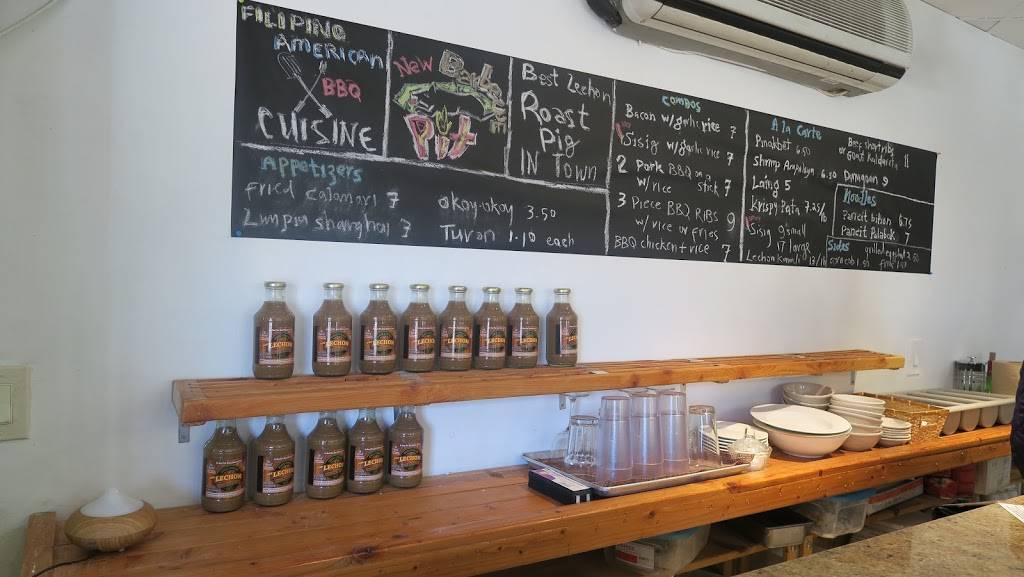 FILIPINO
AMERICAN
BBQ
CUISINE
New Barbecue
Pit
Best Lechon
Roast
Pig
IN TOWN
Appetizers
Fried calamari 7
Lumpia shanghai 7
okoy-okoy 3.50
Turon 1.10 each
COMBOS
Bacon w/garlic rice 7
Sisig w/garlic rice 7
2 Pork BBQ on a
w/rice stick 7
3 Piece BBQ RIBS 9
w/rice w fries
BBQ chicken + rice 7
A la Carte
Pinakbit 6.50
Shrimp Ampalaya 6.50
Laing 5
Krispy Pata 7.25/lb
Sisig 9 small
17 large
Lechon Kawali 13/lb
Beef shortribs
or Goat Kaldereta 11
Dinuguan 9
Noodles
Pancit bihon 6.75
Pancit Palabok 7
Sides
grilled eggplant 2.50
LECHON
LECHON
LECHON
LECHON
LECHON
LECHON
LECHON
LECHON
LECHON
LECHON
LECHON
LECHON
LECHON